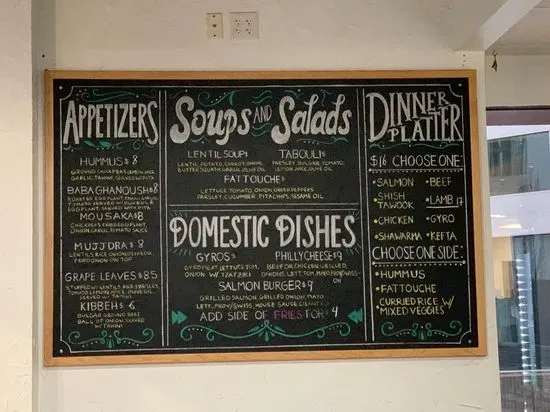 APPETIZERS
HUMMUS $ 8
GROUND CHICKPEAS, LEMON JUICE,
GARLIC, TAHINI, SERVED W/ PITA
BABAGHANOUSH $ 8
ROASTED EGGPLANT, ONION, GARLIC
EGGPLANT, SERVED WITH PITA
MOUSAKA $ 8
CHICKPEAS, FRIED EGGPLANT,
ONION, GARLIC, TOMATO SAUCE
MUJJDRA $ 8
LENTILS, RICE, ONION, OLIVE OIL
FRIED ONION ON TOP
GRAPE LEAVES $ 8.5
STUFFED W/ LENTILS, RICE, PARSLEY,
TOMATO, LEMON JUICE, OLIVE OIL
SERVED W/ TAHINI
KIBBEH $ 6
BULGAR GROUND BEEF
BALL OF ONION, SERVED
W/ TAHINI
SOUPS AND SALADS
LENTIL SOUP $
LENTIL, POTATO, CARROT, ONION,
BUTTER SQUASH, GARLIC, OLIVE OIL
TABOULI $
PARSLEY, BULGAR, TOMATO,
LEMON JUICE, OLIVE OIL
FATTOUCHE $
LETTUCE, TOMATO, ONION, GREEN PEPPERS
PARSLEY, CUCUMBER, PITA CHIPS, SESAME OIL
DOMESTIC DISHES
GYROS $
GYRO MEAT, LETTUCE, TOM,
ONION W/ TZATZIKI
PHILLY CHEESE $ 9
BEEF OR CHICKEN, GRILLED
ONIONS, LETT, TOM, MAYO, PROV/SWISS-
ON
SALMON BURGER $ 9
GRILLED SALMON, GRILLED ONION, MAYO
LETT, PROV/SWISS, HOUSE SAUCE
ADD SIDE OF FRIES FOR $ 4
DINNER
PLATTER
$16 CHOOSE ONE:
• SALMON
• SHISH
TAWOOK
• CHICKEN
• SHAWARMA
• BEEF
• LAMB 17
• GYRO
• KEFTA
CHOOSE ONE SIDE:
• HUMMUS
• FATTOUCHE
• CURRIED RICE W/
MIXED VEGGIES